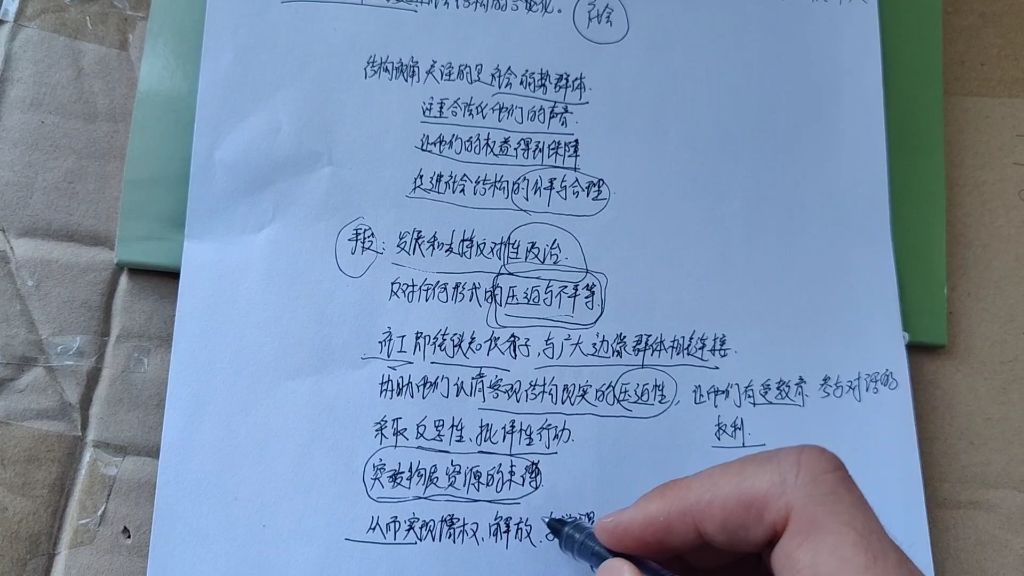 社会
结构视角关注的是社会弱势群体.
这里合法化他们的声音.
让他们的权益得到保障
促进社会结构的公平与合理
手段:发展和支持反对性政治.
反对任何形式的压迫与不平等.
社工即传统知识分子,与广大边缘群体相连接.
协助他们认清客观结构现实的压迫性,让他们有受教育、参与对话的
权利.
采取反思性、批评性行动.
突破物质资源的束缚
从而实现增权、解放、